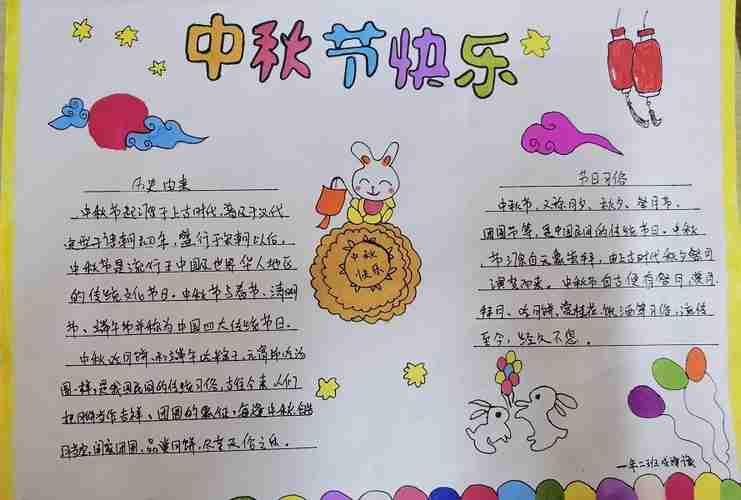 中秋节快乐
历史由来
中秋节起源于上古时代，普及于汉代
定型于唐朝初年，盛行于宋朝以后。
中秋节是流行于中国及世界华人地区
的传统文化节日。中秋节与春节、清明
节、端午节并称为中国四大传统节日。
中秋吃月饼，和端午吃粽子，元宵节吃汤
圆一样，是我国民间的传统习俗，古往今来，人们
把月饼当作吉祥、团圆的象征，每逢中秋，皓
月当空，阖家团圆，品尝月饼，尽享天伦之乐。
中秋
快乐
节日习俗
中秋节，又称月夕、秋夕、祭月节、
团圆节等，是中国民间的传统节日。中秋
节源自天象崇拜，由上古时代秋夕祭月
演变而来。中秋节自古便有祭月、赏月、
拜月、吃月饼、赏桂花、饮酒等习俗，流传
至今，经久不息。
一年二班